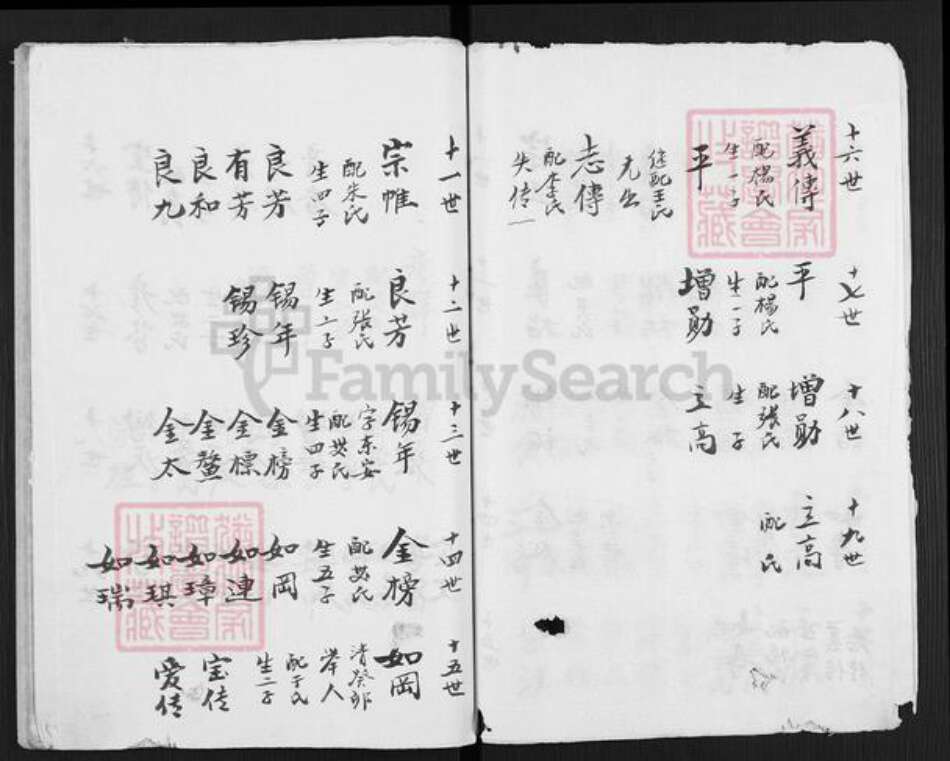 十六世
義傳
配楊氏
生一子
平
继配王氏
无出
志傳
配李氏
失传
十七世
平
配楊氏
生一子
增勛
十八世
增勛
配張氏
生 子
立高
十九世
立高
配 氏
猶他家
譜學會
之藏
十一世
宗帷
配朱氏
生四子
良芳
有芳
良和
良九
十二世
良芳
配張氏
生二子
錫年
錫珍
十三世
錫年
字东安
配 氏
生四子
金榜
金標
金鰲
金太
十四世
金榜
配 氏
生五子
如岡
如連
如璋
如琪
如瑞
十五世
如岡
清癸卯
举人
配于氏
生二子
宝传
爱传
猶他家
譜學會
之藏
FamilySearch